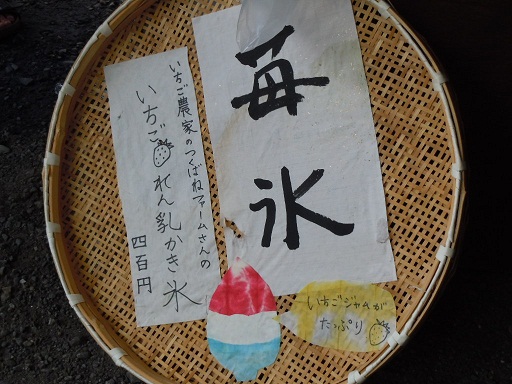 苺氷
いちご農家のつくばねファームさんの
いちごれん乳かき氷
四百円
いちごジャムが
たっぷり